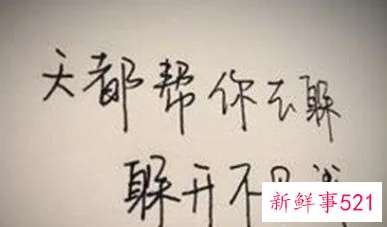 天都帮你去躲
躲开不
新鲜事521